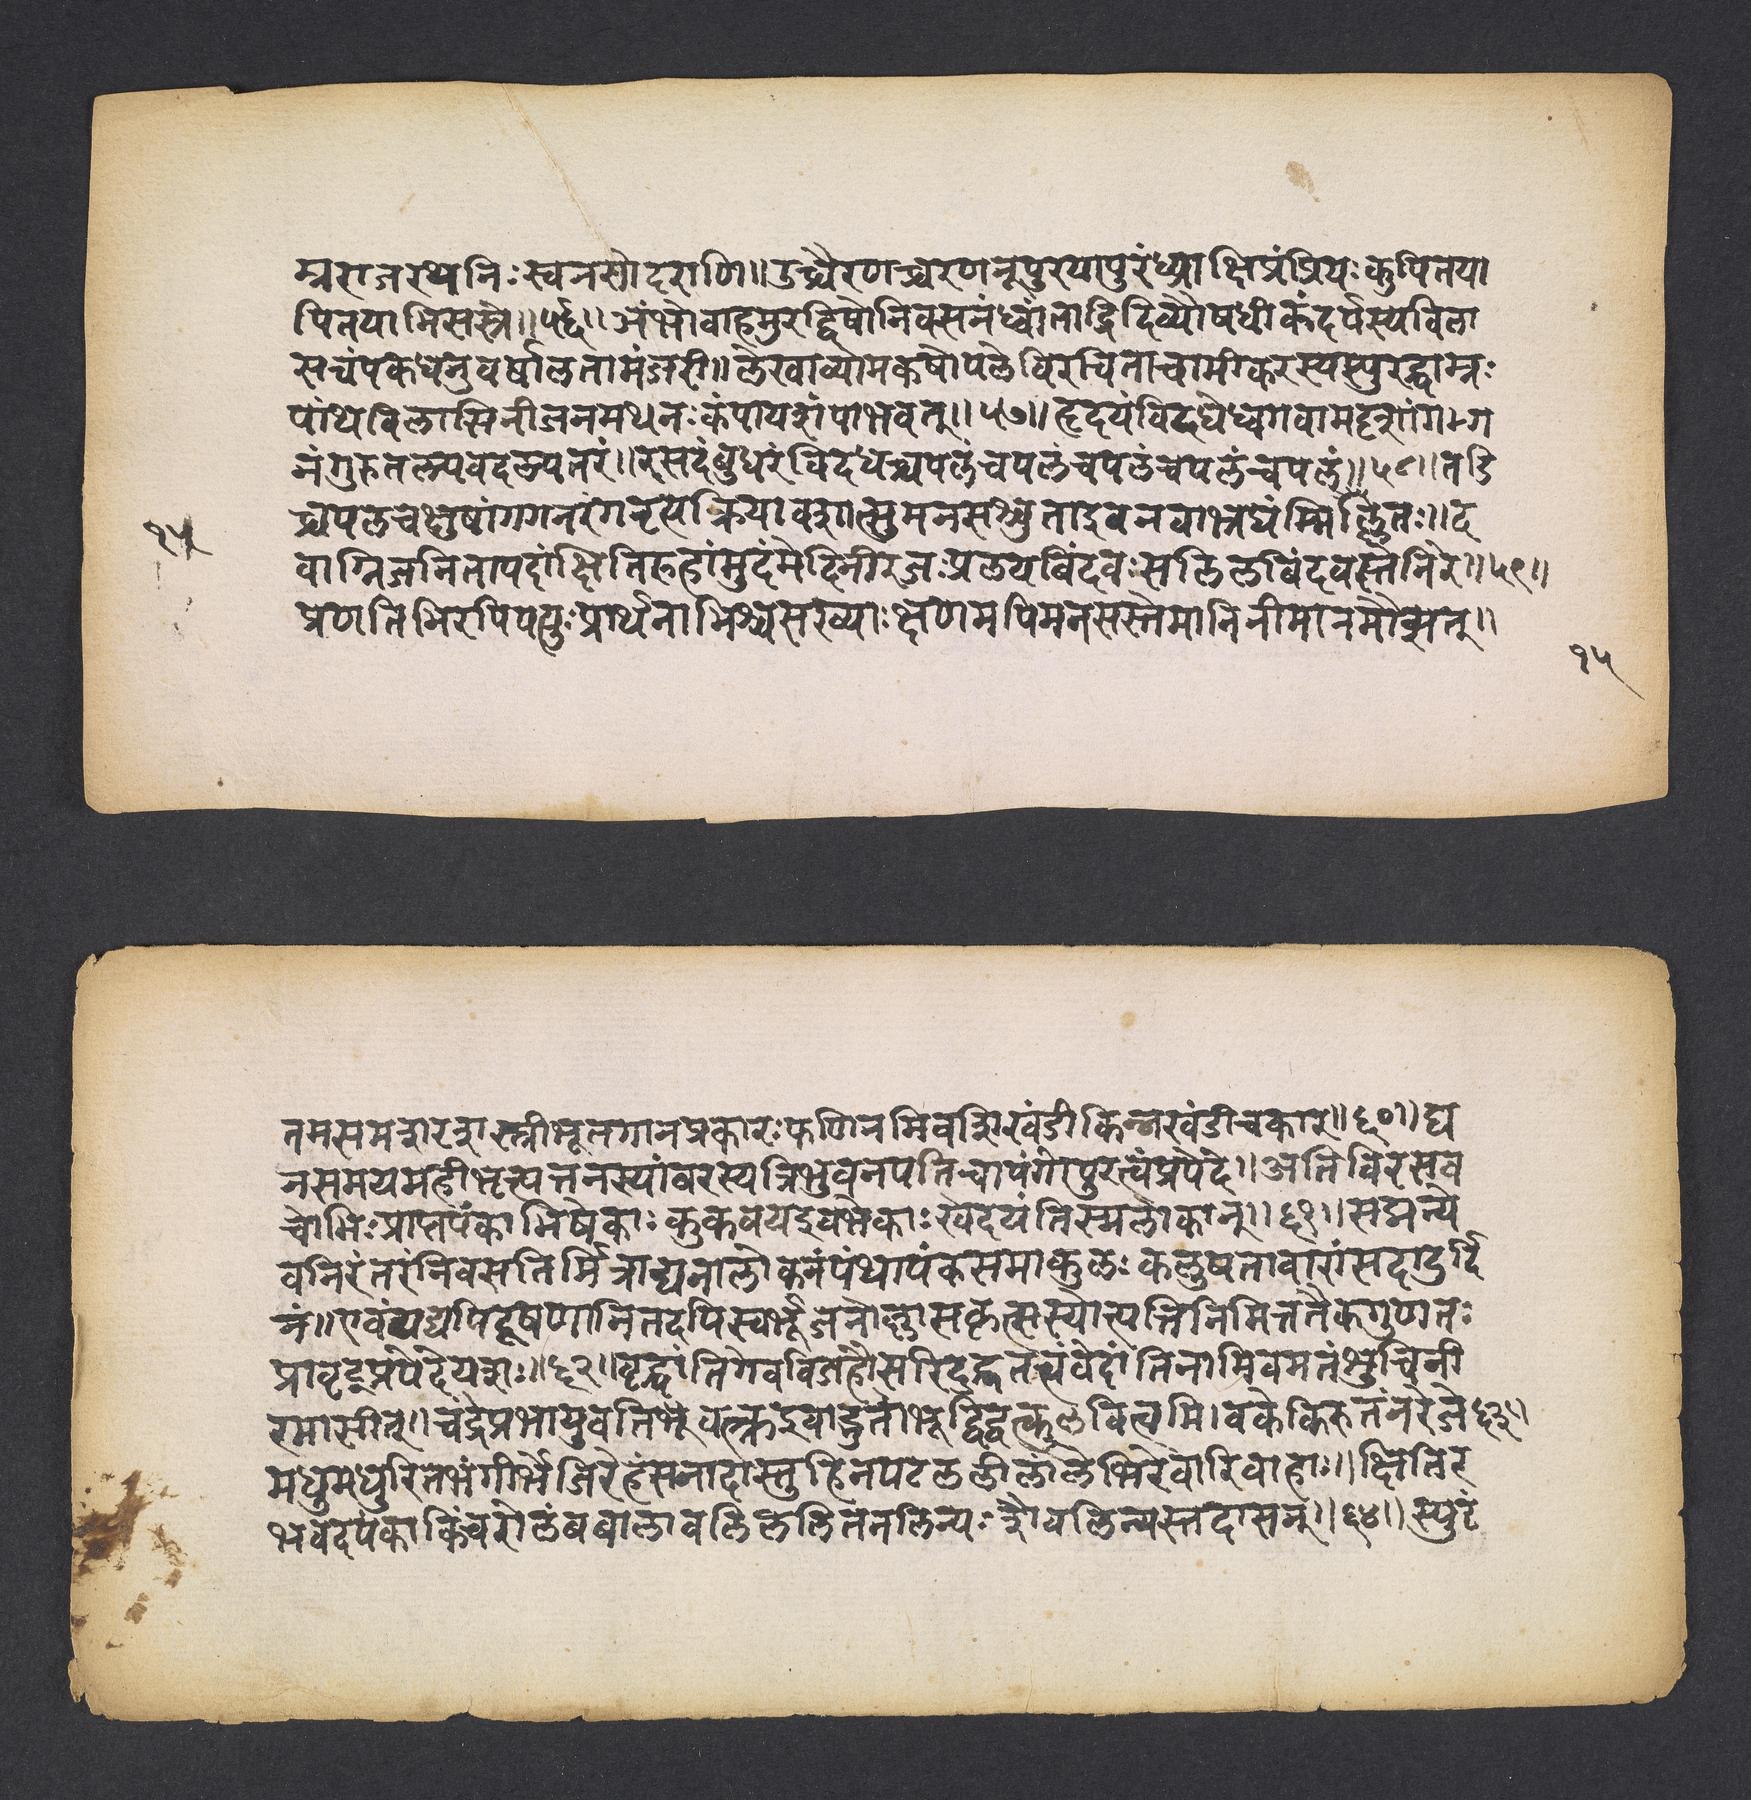 म्नराजरथनिःस्वनसोदराणि॥उच्चैरणच्चरणनूपुरयापुरंध्र्याक्षिप्रंप्रियःकुपितया
पितयाभिसस्रे॥५६॥अंभोवाहमुरद्विषोनिवसनंध्वांताद्रिदिव्यौषधीकंदर्पस्यविला
सचंपकधनुवर्षालतामंजरी॥लेखाव्योमकषोपलेविरचिताचामीकरस्यस्फुरद्धाम्नः
पांथविलासिनीजनमथनःकंपायशंपाभवत्॥५७॥हृदयंविदधेध्वगवामदृशांग
नंगुरुतल्पवदल्पतरं॥रसदंबुधरंविदधच्चपलंचपलंचपलंचपलंचपलं॥५८॥तडि
च्चपलचक्षुषांगगनरंगनृसक्रियावशात्सुमनसश्च्युताइवनवाभ्रधंम्मिल्लतः॥द
वाग्निजनितापदांक्षितिरुहांमुदंमेदिनीरजःप्रलयबिंदवःसलिलबिंदवस्तेनिरे॥५९॥
प्रणतिभिरपिपत्युःप्रार्थनाभिश्चसख्याःक्षणमपिमनसस्तेमानिनीमानमौक्षत्॥
१५
१५
तमसमशरशस्त्रीभूतगानप्रकारःफणिनमिवशिखंडीकिन्नखंडीचकार॥६०॥घ
नसमयमहीभृत्पत्तनस्यांबरस्यत्रिभुवनपतिचापंगोपुरत्वंप्रपेदे॥अतिविरसव
चोभिःप्राप्तपंकाभिषेकाःकुकवयइवभेकाःखेदयंतिस्मलोकान्॥६१॥सद्मन्ये
वनिरंतरंनिवसतिर्मित्राद्यनालोकनंपंथापंकसमाकुलःकलुषतावारांसदादुर्दि
नं॥एवंयद्यपिदूषणानितदपिस्वर्भूजनोज्ञासकृत्सस्योत्पत्तिनिमित्ततैकगुणतः
प्रावृट्प्रपेदेयशः॥६२॥वृद्धांतिगेवविजहौसरिदुद्धतत्वंवेदांतिनामिवमतंशुचिनी
रमासीत्॥चंद्रेप्रभायुवतिभ्रूवत्क्रइवाद्भुताभूद्विद्वत्कुलेवित्वमि।वकेकिरुतंनरेजे६३॥
मधुमधुरितभंगीर्भेजिरेहंसनादास्तुहिनपटललीलांलेभिरेवारिवाहाः॥क्षितिर
भवदपंकाकिंचरोलंबबालावलिललितनलिन्यःशैवलिन्यस्तदासन्॥६४॥स्फुट